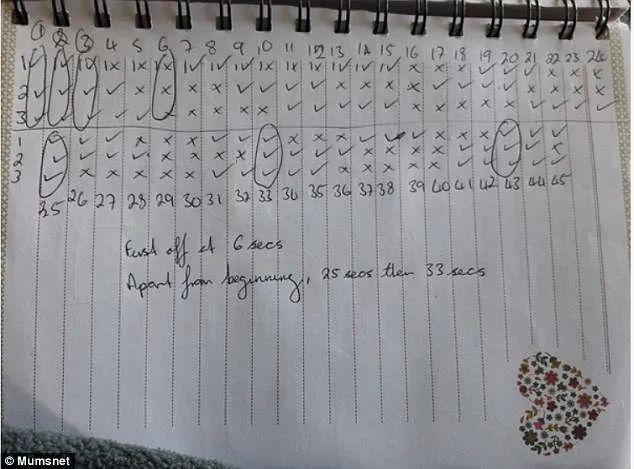 1 2 3 4 5 6 7 8 9 10 11 12 13 14 15 16 17 18 19 20 21 22 23 24
1 ✓ ✓ x x x x ✓ ✓ ✓ x x x ✓ ✓ ✓ x x x ✓ ✓ ✓ x x x
2 ✓ ✓ ✓ ✓ x x x x ✓ ✓ ✓ ✓ x x x x ✓ ✓ ✓ ✓ x x x x
3 ✓ ✓ ✓ ✓ ✓ x x x x x ✓ ✓ ✓ ✓ ✓ x x x x x ✓ ✓ ✓ ✓
1 ✓ ✓ ✓ x x x ✓ ✓ ✓ x x x ✓ ✓ ✓ x x x ✓ ✓ ✓
2 ✓ ✓ ✓ x x x x ✓ ✓ ✓ ✓ x x x x ✓ ✓ ✓ ✓ x
3 ✓ x x x x x ✓ ✓ ✓ ✓ ✓ x x x x x ✓ ✓ ✓ ✓ ✓
25 26 27 28 29 30 31 32 33 34 35 36 37 38 39 40 41 42 43 44 45
First off at 6 secs
Apart from beginning, 25 secs then 33 secs
© Mumsnet